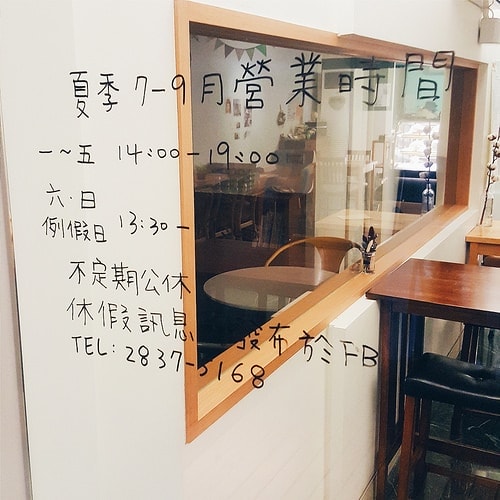 夏季 7-9月營業時間
一~五 14:00-19:00
六.日
例假日 13:30-
不定期公休
休假訊息 發布於FB
TEL: 2837-5168